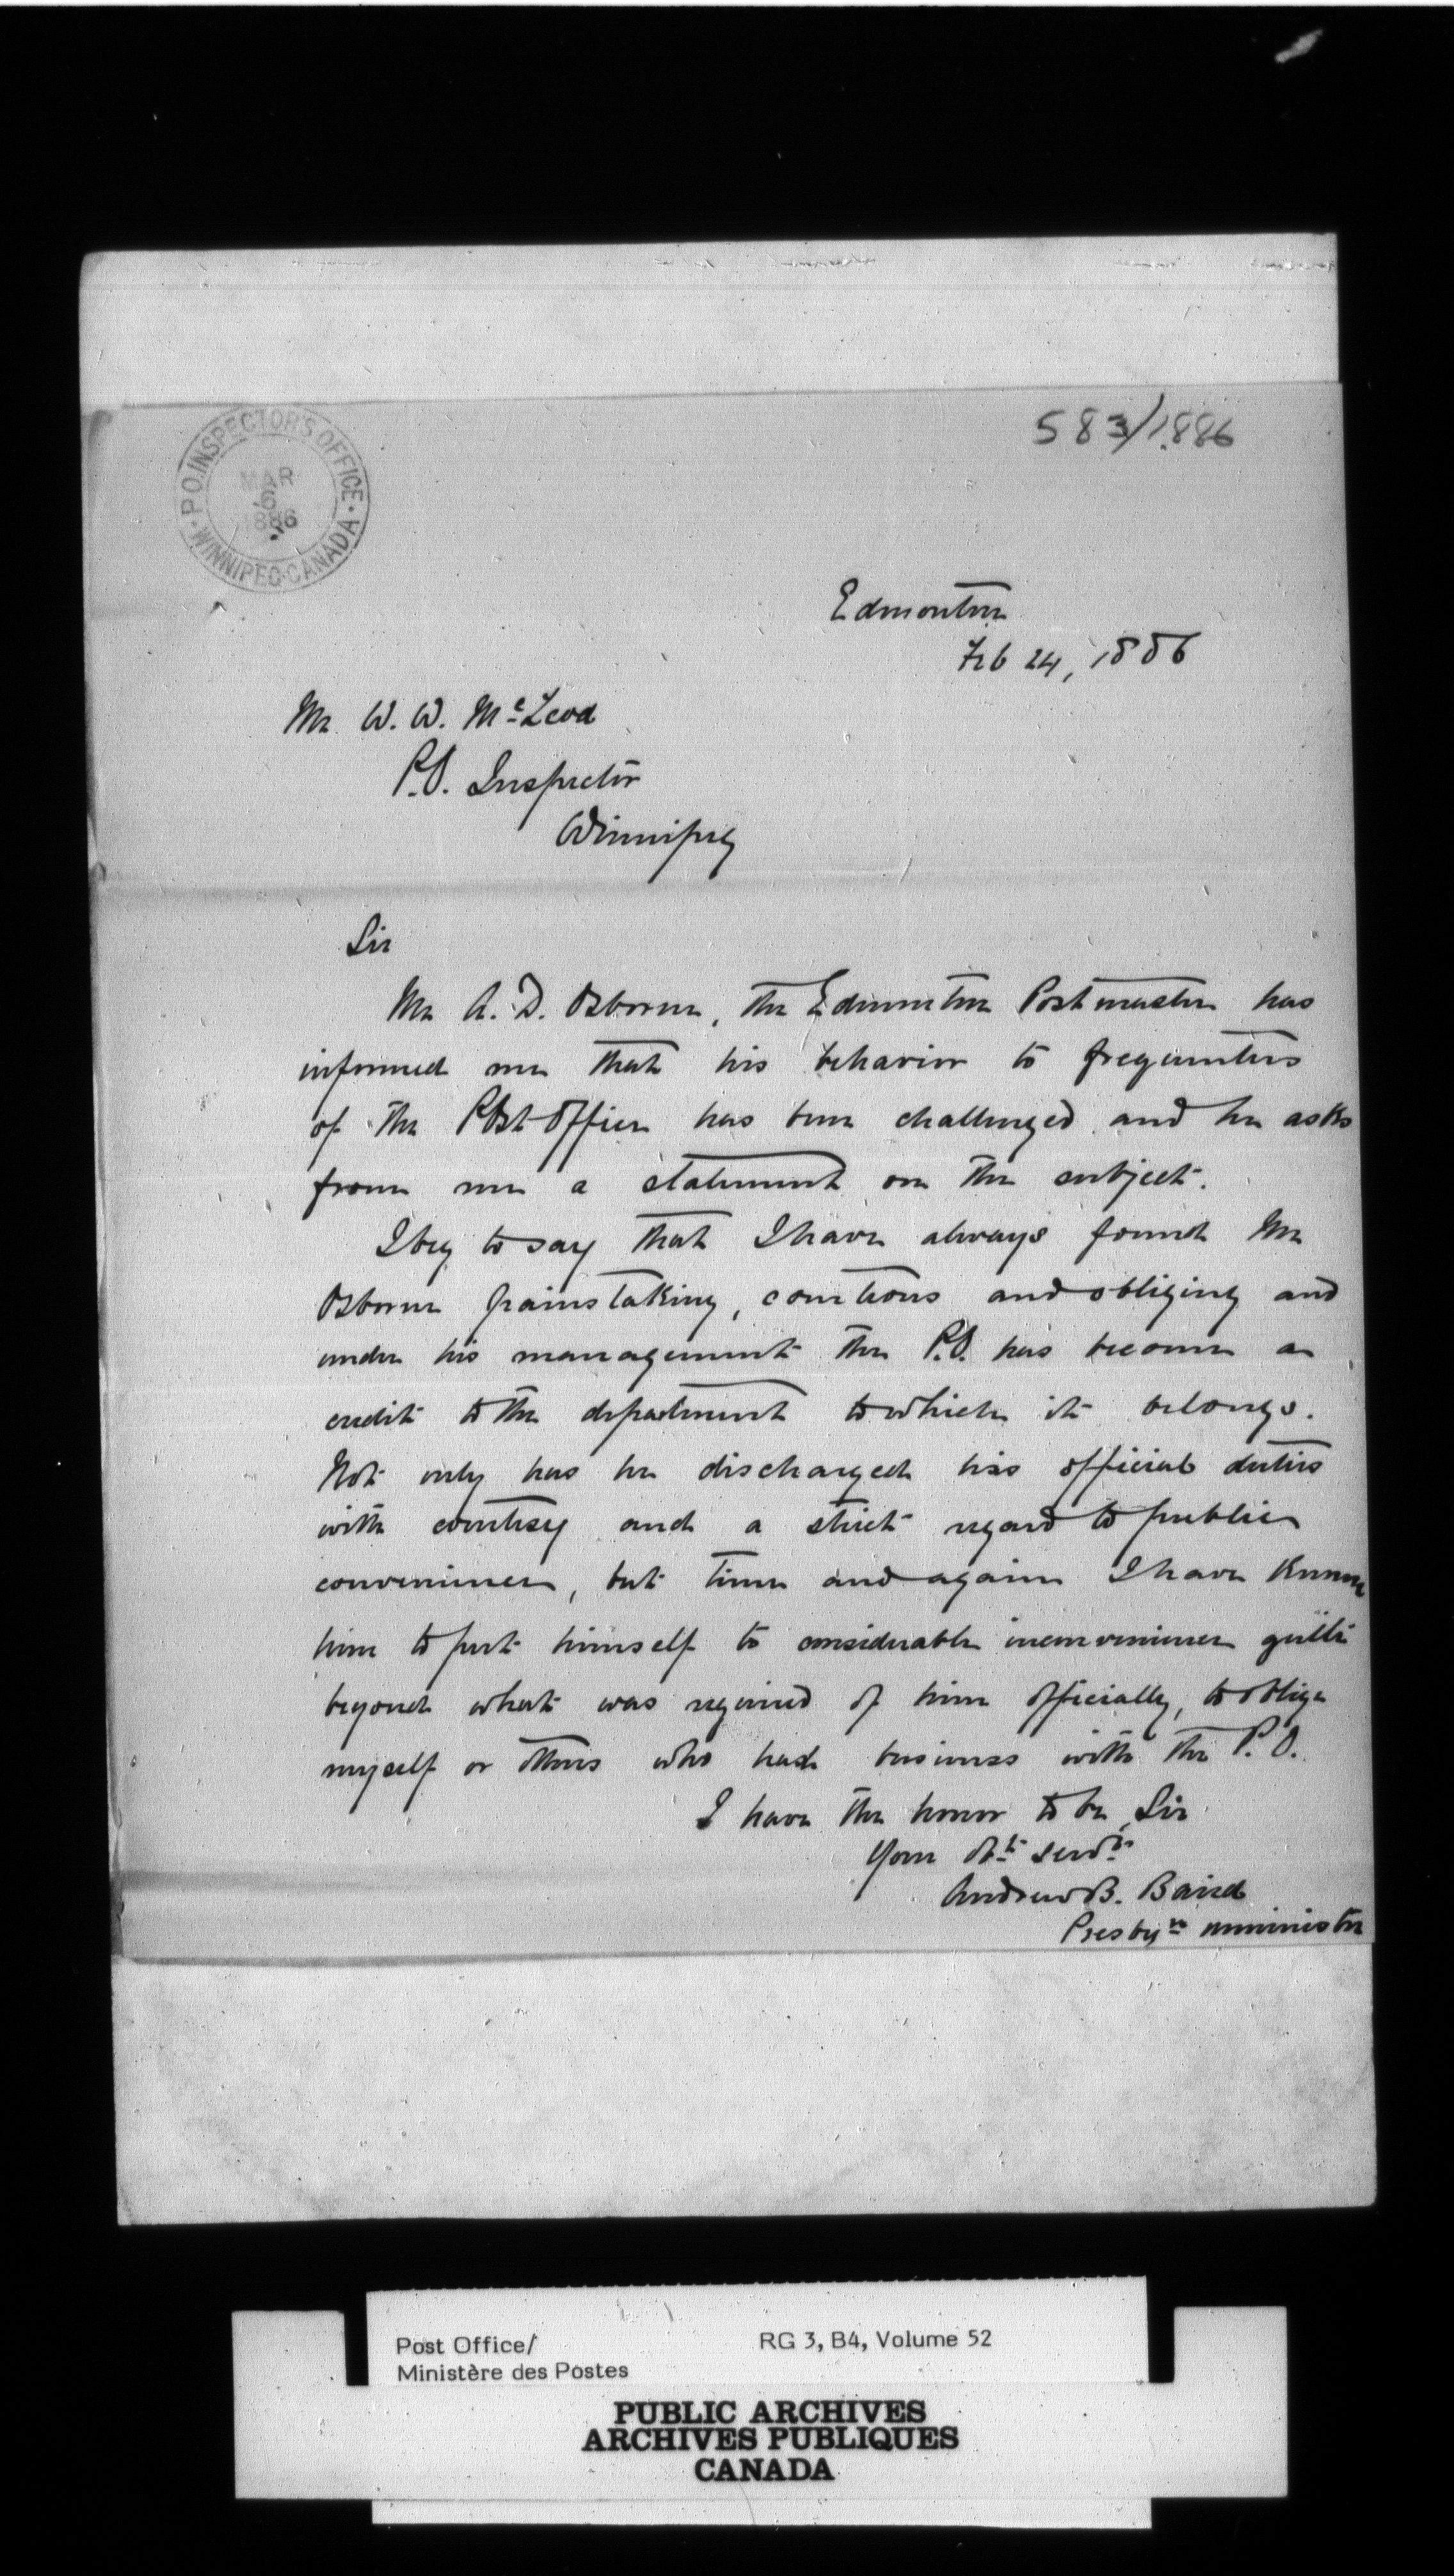 583/1886
P.O. INSPECTOR'S OFFICE
MAR
6
1886
WINNIPEG CANADA
Edmonton
Feb 24, 1886
Mr W. W. McLeod
P.O. Inspector
Winnipeg
Sir
Mr A. D. Osborne, the Edmonton Postmaster has
informed me that his behavior to frequenters
of the Post Office has been challenged and he asks
from me a statement on the subject.
I beg to say that I have always found Mr
Osborne painstaking, courteous and obliging and
under his management the P.O. has become a
credit to the department to which it belongs.
Not only has he discharged his official duties
with courtesy and a strict regard to public
convenience, but time and again I have known
him to put himself to considerable inconvenience quite
beyond what was required of him officially, to oblige
myself or others who had business with the P.O.
I have the honor to be, Sir
Your obt servt
Andrew B. Baird
Presbyn minister
Post Office/
Ministère des Postes
RG 3, B4, Volume 52
PUBLIC ARCHIVES
ARCHIVES PUBLIQUES
CANADA